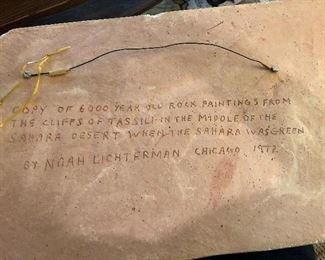 COPY OF 6000 YEAR OLD ROCK PAINTINGS FROM
THE CLIFFS OF TASSILI IN THE MIDDLE OF THE
SAHARA DESERT WHEN THE SAHARA WAS GREEN
BY NOAH LICHTERMAN CHICAGO 1972